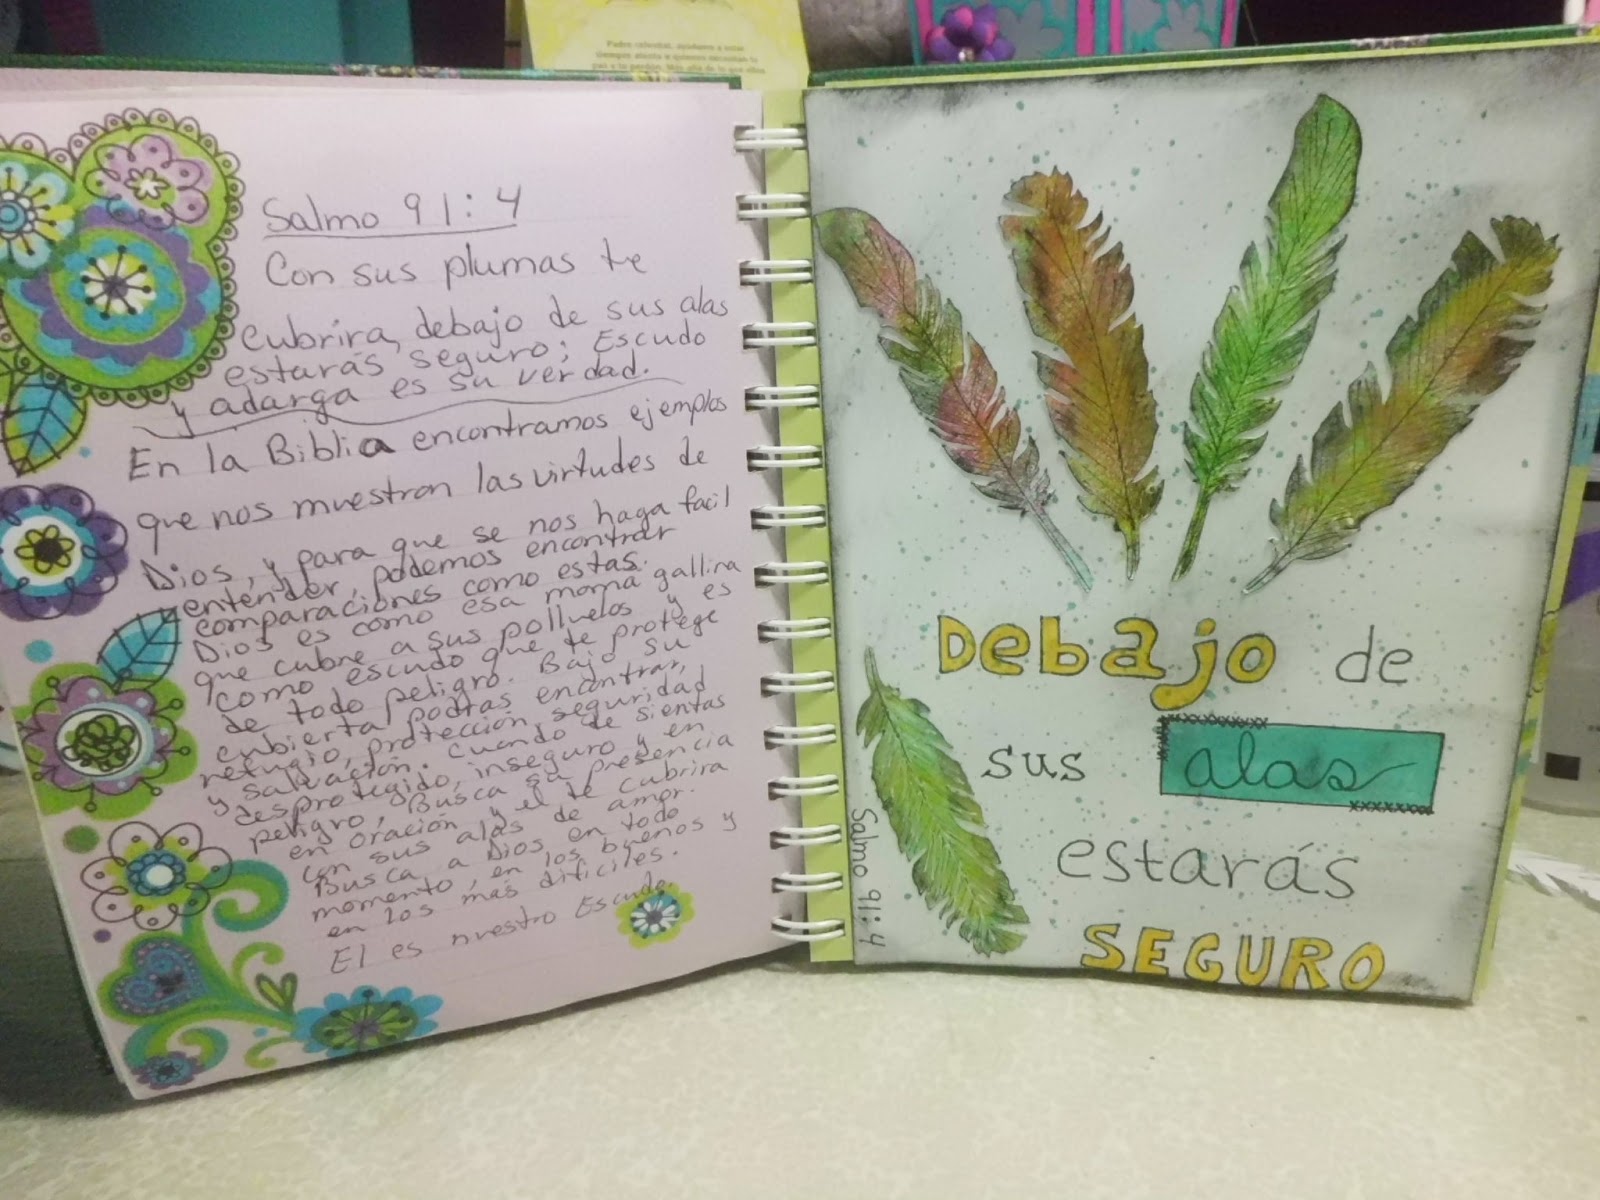 Padre celestial, ayúdame a estar
siempre atento a quienes necesitan tu
paz y tu perdón. Más allá de lo que ellos
Salmo 91:4
Con sus plumas te
cubrira, debajo de sus alas
estarás seguro; Escudo
y adarga es su verdad.
En la Biblia encontramos ejemplos
que nos muestran las virtudes de
Dios, y para que se nos haga facil
entender, podemos encontrar
comparaciones como estas.
Dios es como esa mamá gallina
que cubre a sus polluelos y es
como escudo que te protege
de todo peligro. Bajo su
cubierta podras encontrar,
refugio, protección, seguridad
y salvación. Cuando te sientas
desprotegido, inseguro y en
peligro, Busca su presencia
en oración y el te cubrira
con sus alas de amor.
Busca a Dios en todo
momento, en los buenos y
en los más dificiles.
El es nuestro Escudo.
Debajo de
sus alas
estarás
SEGURO
Salmo 91:4